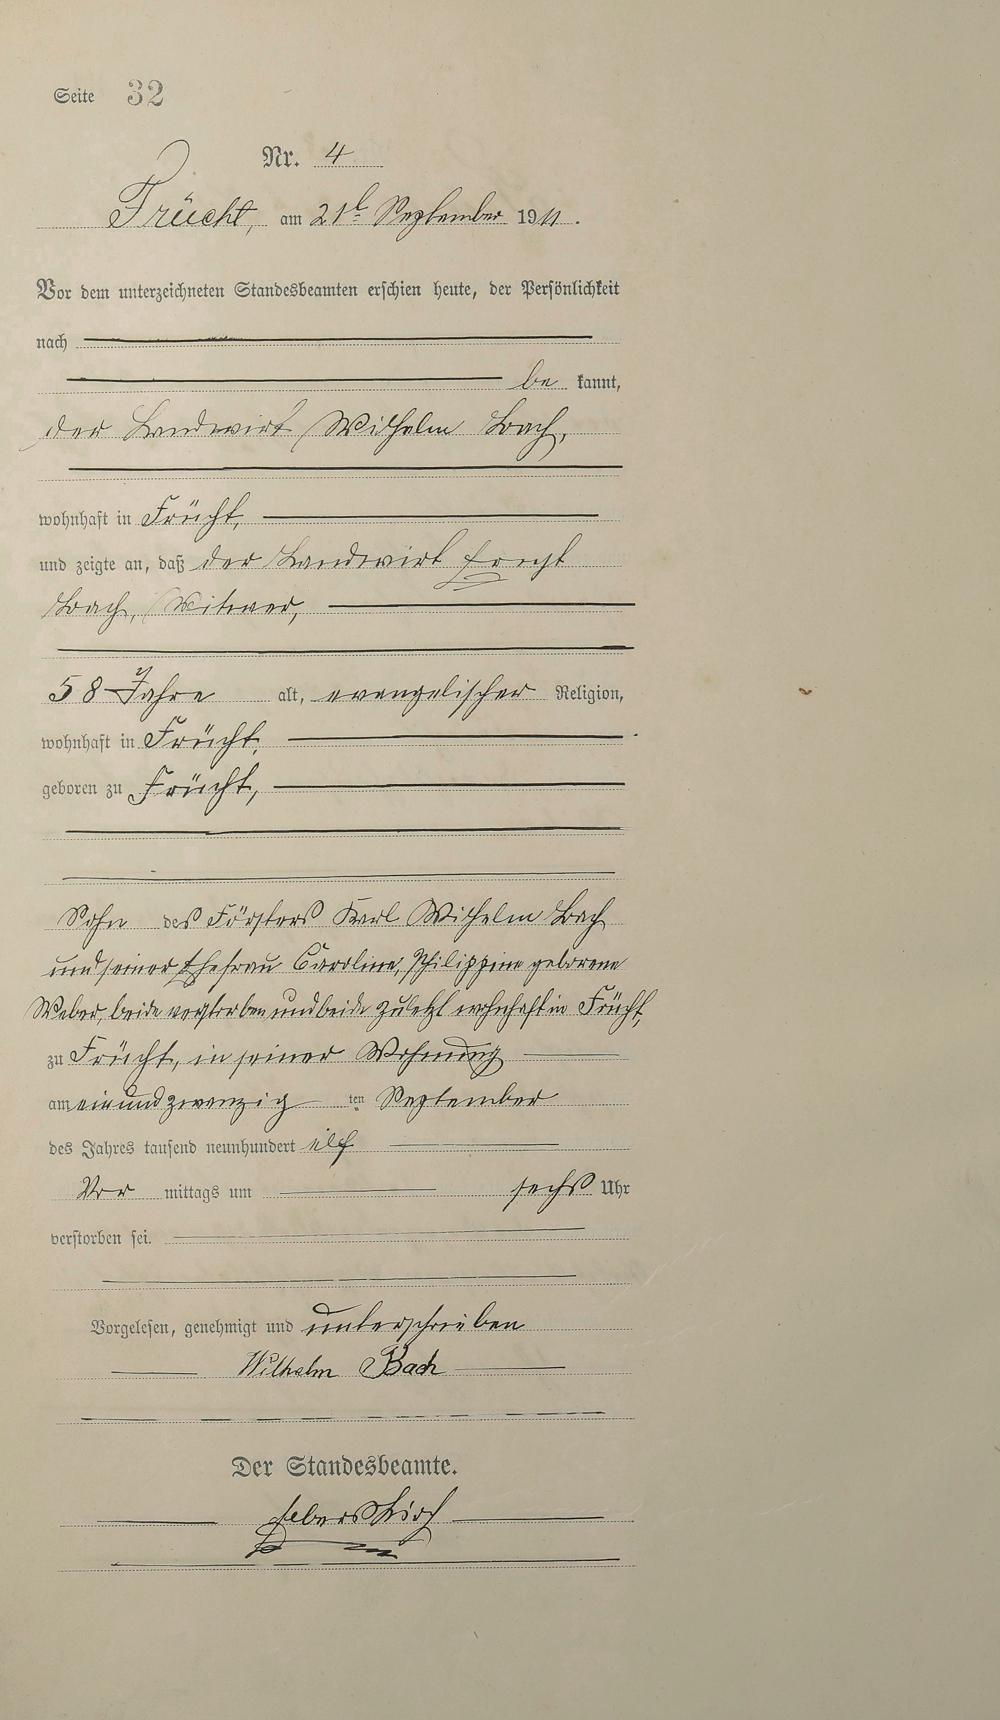 Seite 32
Nr. 4
Frücht, am 21t September 1911.
Vor dem unterzeichneten Standesbeamten erschien heute, der Persönlichkeit
nach
be kannt,
der Landwirt Wilhelm Bach,
wohnhaft in Frücht,
und zeigte an, daß der Landwirt Ernst
Bach, Witwer,
58 Jahre alt, evangelischer Religion,
wohnhaft in Frücht,
geboren zu Frücht,
Sohn des Försters Karl Wilhelm Bach
und seiner Ehefrau Caroline, Philippine geborene
Weber, beide verstorben und beide zuletzt wohnhaft in Frücht,
zu Frücht, in seiner Wohnung
am einundzwanzig ten September
des Jahres tausend neunhundert elf
Vor mittags um sechs Uhr
verstorben sei.
Vorgelesen, genehmigt und unterschrieben
Wilhelm Bach
Der Standesbeamte.